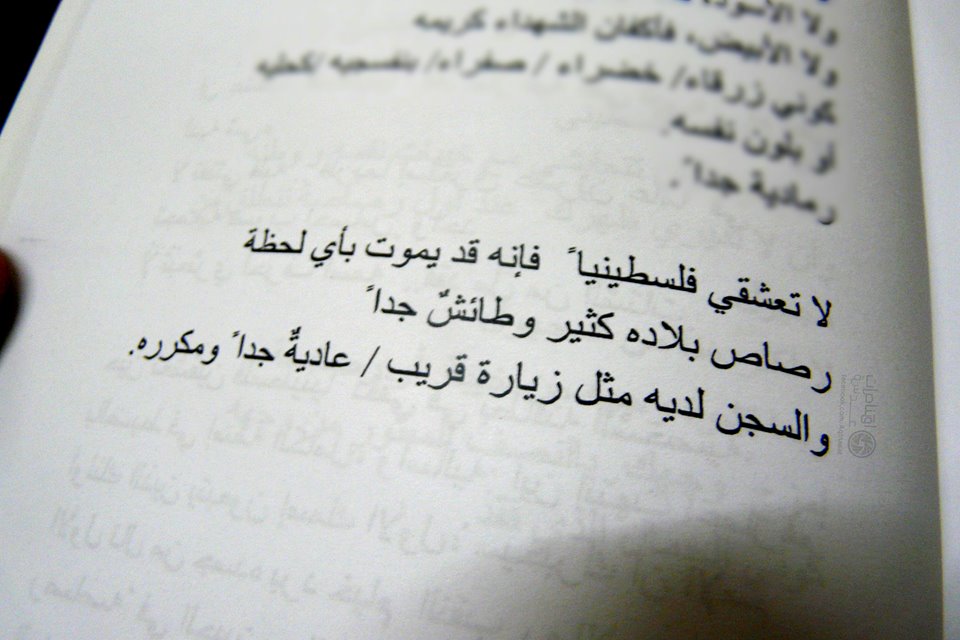 ولا الأسود
ولا الأبيض، فأكفان الشهداء كريمه
كوني زرقاء/ خضراء / صفراء/ بنفسجيه /كحليه
أو بلون نفسه.
رمادية جدا ً .
لا تعشقي فلسطينيا ً فإنه قد يموت بأي لحظة
رصاص بلاده كثير وطائشٌ جدا ً
والسجن لديه مثل زيارة قريب / عاديةٌ جدا ً ومكرره.